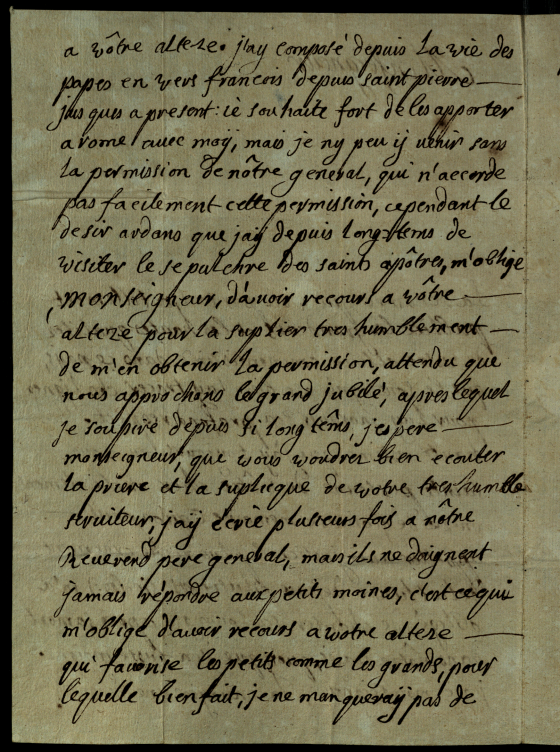 a vôtre alteze. j'ay composé depuis la vie des
papes en vers francois depuis saint pierre
jusques a present: iè souhaite fort de les apporter
a rome avec moÿ, mais je ny peu ij venir sans
la permission de nôtre general, qui n'accorde
pas facilement cette permission, cependant le
desir ardans que jaÿ depuis longstems de
visiter le sepulchre des saints apôtres, m'oblige
, Monseigneur, d'avoir recours a vôtre
alteze pour la suplier tres humblement
de m'en obtenir la permission, attendu que
nous approchons le grand jubilé, apres lequel
je soupire depuis si long têms, jespere
monseigneur, que vous voudrez bien ecouter
la priere et la suplicque de votre tres humble
serviteur, jaÿ ecrie plusieurs fois a nôtre
Reverend pere general, mais ils ne daignent
jamais répondre aux petits moines, c'est ce qui
m'oblige d'avoir recours a votre alteze
qui favorise les petits comme les grands, pour
lequelle bienfait, je ne manqueraÿ pas de